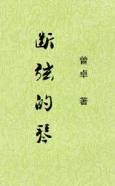 断弦的琴
曾卓 著